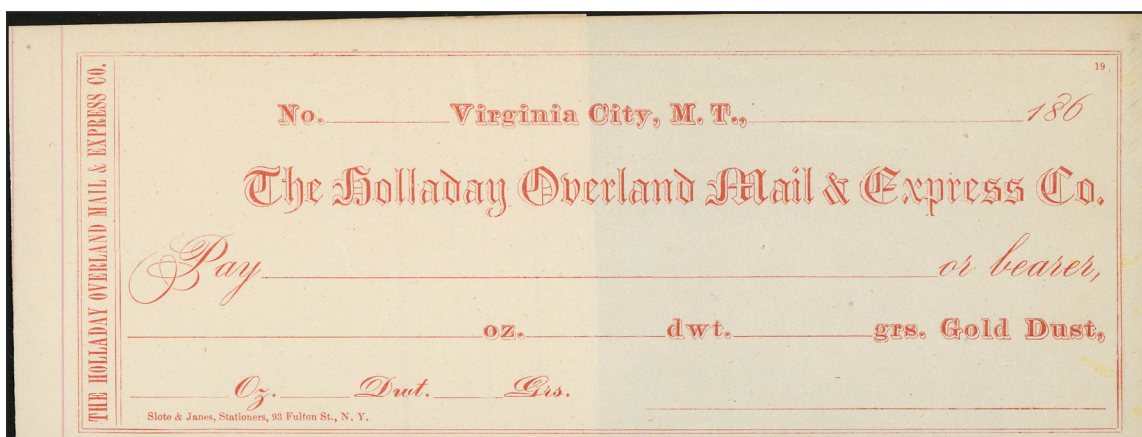 THE HOLLADAY OVERLAND MAIL & EXPRESS CO.
19
No. Virginia City, M. T., 186
The Holladay Overland Mail & Express Co.
Pay or bearer,
oz. dwt. grs. Gold Dust,
Oz. Dwt. Grs.
Slote & Janes, Stationers, 93 Fulton St., N. Y.